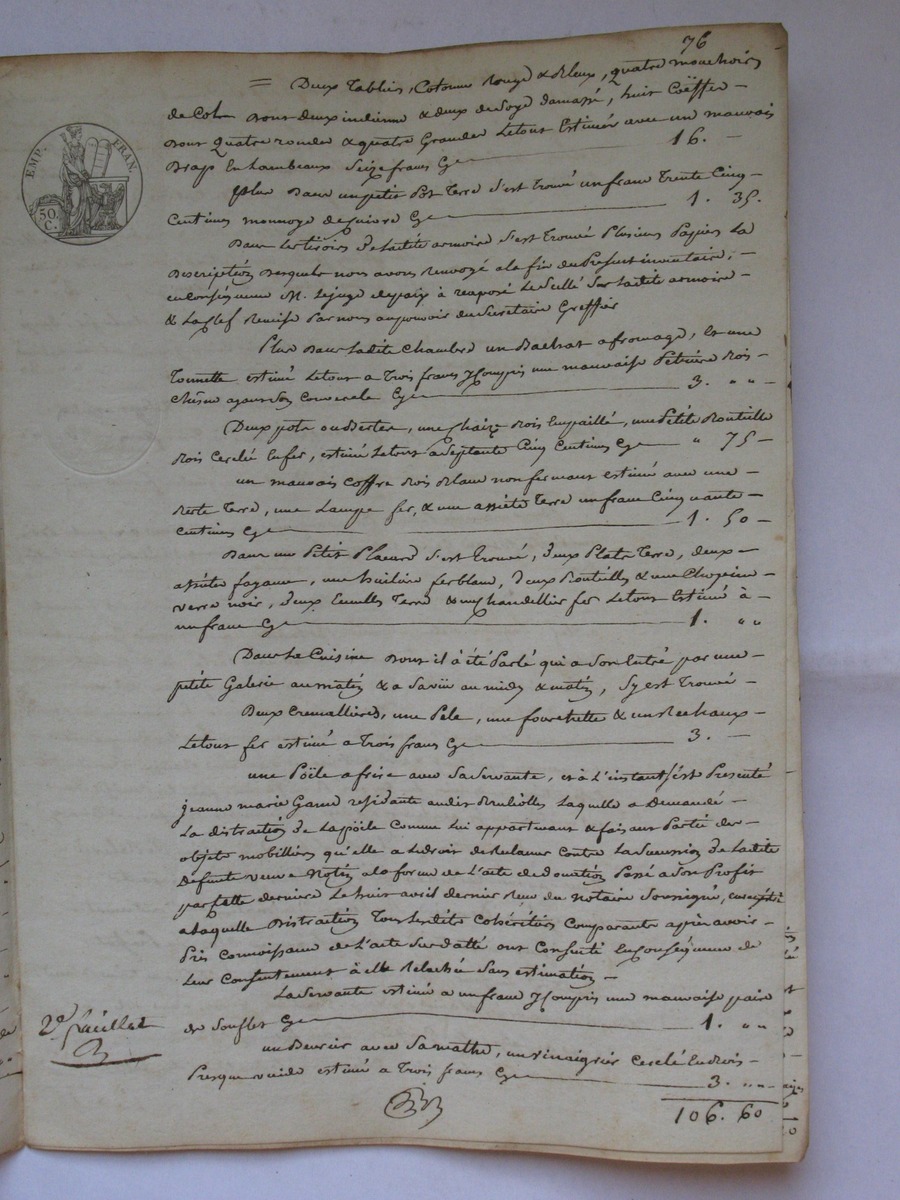 76
= Deux Tabliers, Cotonne Rouge & Bleux, quatre mouchoirs
de Col dont deux indienne & deux de Soye damassé, huit Coëffes
dont quatre rondes & quatre Grandes Le tout Estimés avec un mauvais
Drap En Lambeaux Seize francs Cy — 16. —
Plus Dans un petit Pot Terre S'est Trouvé un franc Trente Cinq
Centimes monnoye de Cuivre Cy — 1. 35.
Dans Les tiroirs de Ladite armoire S'est Trouvé Plusieurs Papiers La
Description desquels nous avons Renvoyé a la fin du Present inventaire, —
en Conséquence M. Le juge de paix à reaposé Le Scellé Sur Ladite armoire —
& La Clef Remise Par nous au pouvoir du Secretaire Greffier
Plus Dans Ladite Chambre un Bachat a fromage, Et une
Tounette estimé Le tout a Trois francs y Compris une mauvaise Petrière Bois
Chêne ayant Son Couvercle Cy — 3. " " —
Deux pots ou Bertes, une Chaize Bois Empaillé, une Petite Bouteille
Bois Cerclé En fer, estimé Le tout a Septante Cinq Centimes Cy — " 75 —
un mauvais Coffre Bois Blanc non fermant estimé avec une
Berte Terre, une Lampe fer, & une assiéte Terre un franc Cinquante —
Centimes Cy — 1. 50 —
Dans un Petit Placard S'est trouvé, deux Plats Terre, deux
assiétes fayance, une huilière ferblanc, deux Bouteilles & une Chopine
verre noir, deux Ecuelles Terre & un Chandellier fer Le tout Estimé à —
un franc Cy — 1. " "
Dans La Cuisine dont il à été Parlé qui a Son Entré par une
petite Galerie au matin & a Sa vüe au midy & matin, S'y est Trouvé —
Deux Cremallières, une Pèle, une fourchette & un Rechaux —
Le tout fer estimé a Trois francs Cy — 3. —
une Pöile a frire avec Sa Servante, et à L'instant S'est Presenté
jeanne marie Gand residante audit Laquelle a Demandé —
La distraction de La pöile Comme Lui appartenant & faisant Partie des
objets mobilliers qu'elle a Le droit de Reclamer Contre La Succession de Ladite
Defunte veuve Notin a la forme de L'acte de donation Passé a Son Profit
par Cette derniere Le huit avril dernier Reçu du Notaire Soussigné,
a Laquelle Distraction Tous Lesdits Cohéritiers Comparants après avoir —
Pris Connoissance de L'acte Sus datté ont Consenti En Conséquence de
Leur Consentement à elle Relachée Sans estimation —
La Servante estimé a un franc y Compris une mauvaise paire
de Souflet Cy — 1. " "
un Beurier avec Sa mathe, un vinaigrier Cerclé En Bois —
Presque vuide estimé a Trois francs Cy — 3. " " —
106. 60
2e feuillet
EMP. FRAN.
50. C.